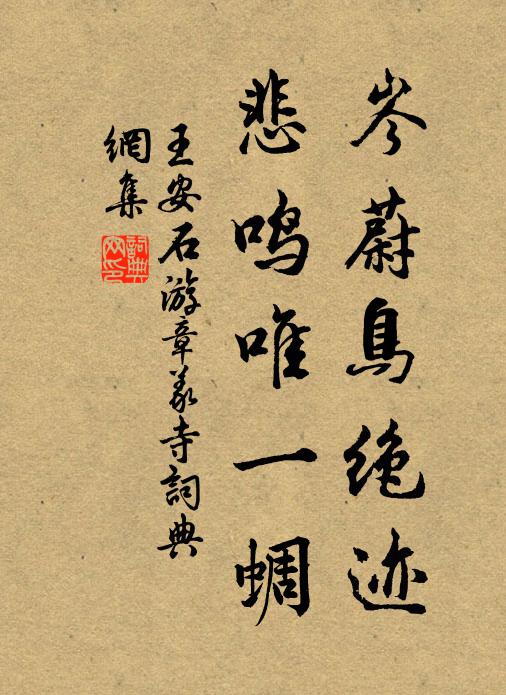 岑蔚鳥绝迹
悲鸣唯一蜩
王安石游章义寺詞典
網集
詞典网印